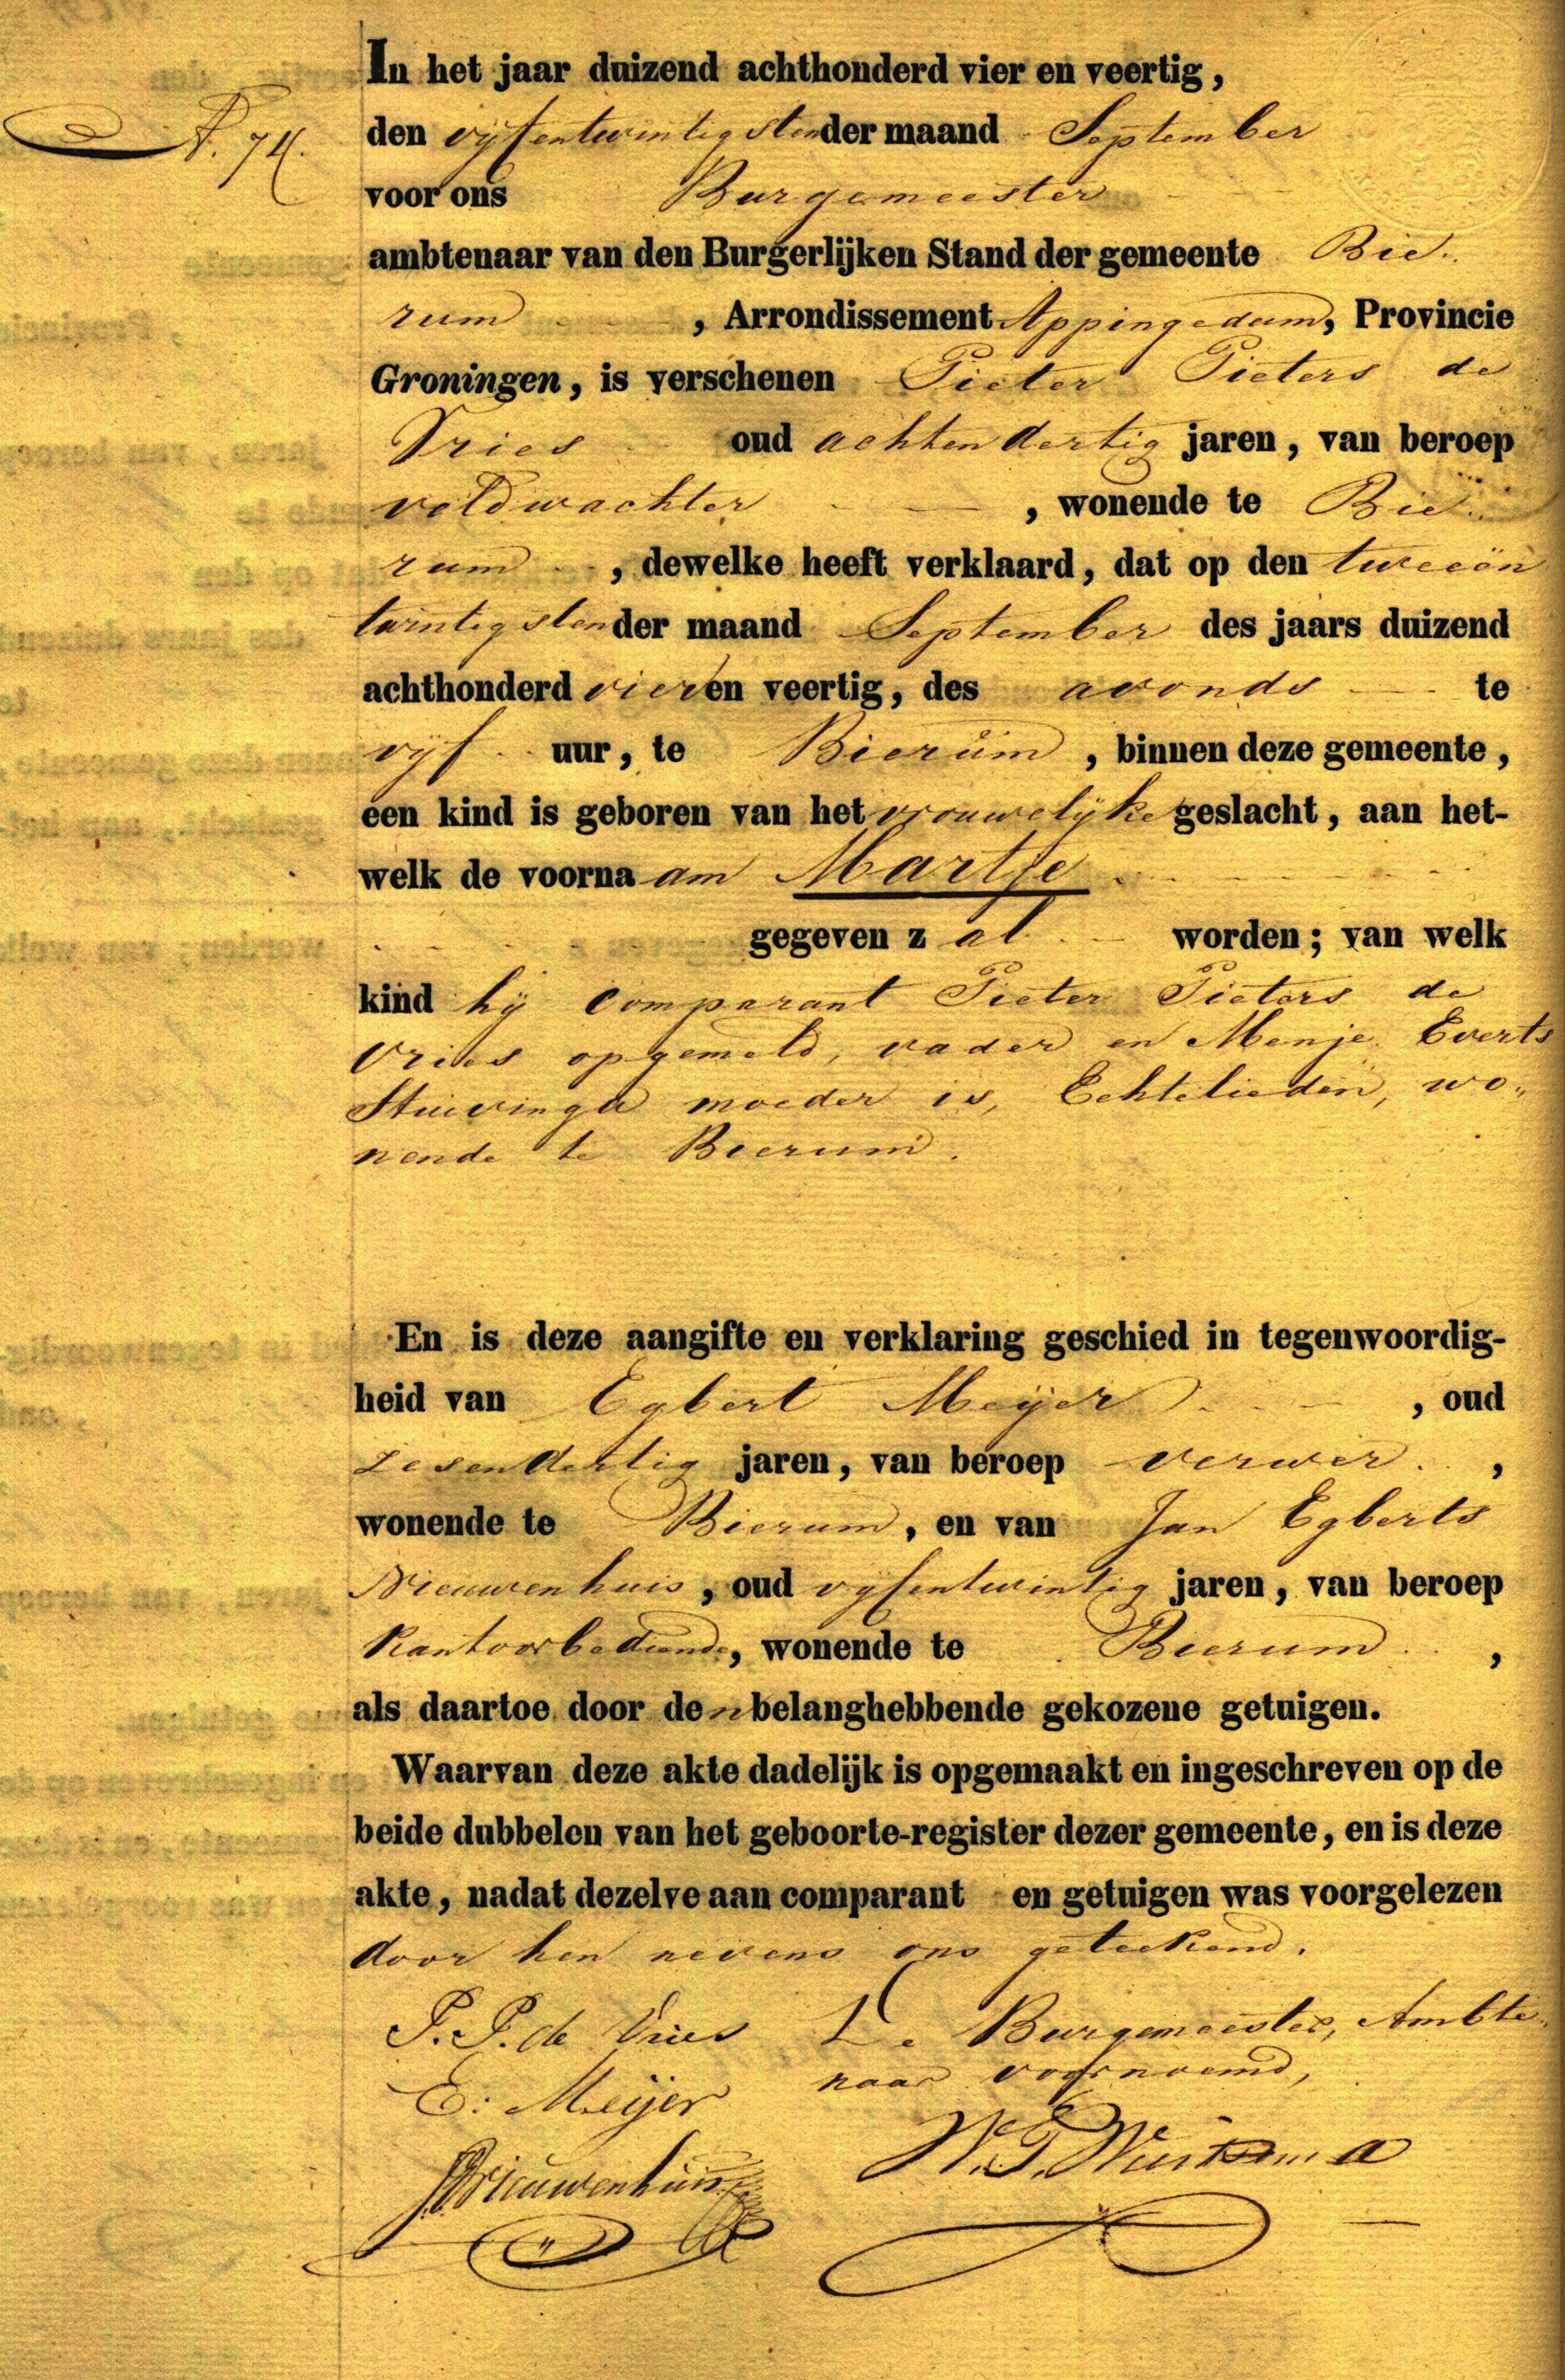 In het jaar duizend achthonderd vier en veertig,
N. 74.
den vijfentwintigsten der maand September
voor ons Burgemeester
ambtenaar van den Burgerlijken Stand der gemeente Bie-
rum, Arrondissement Appingedam, Provincie
Groningen, is verschenen Pieter Pieters de
Vries oud achtendertig jaren, van beroep
veldwachter, wonende te Bie-
rum, dewelke heeft verklaard, dat op den tweeën
twintigsten der maand September des jaars duizend
achthonderd vier en veertig, des avonds te
vijf uur, te Bierum, binnen deze gemeente,
een kind is geboren van het vrouwelijke geslacht, aan het-
welk de voornaam Martje
gegeven zal worden; van welk
kind hij comparant Pieter Pieters de
Vries opgemeld, vader en Menje Everts
Stuivinga moeder is, Echtelieden, wo-
nende te Bierum.
En is deze aangifte en verklaring geschied in tegenwoordig-
heid van Egbert Meijer, oud
zesendertig jaren, van beroep verwer,
wonende te Bierum, en van Jan Egberts
Nieuwenhuis, oud vijfentwintig jaren, van beroep
kantoorbediende, wonende te Bierum,
als daartoe door den belanghebbende gekozene getuigen.
Waarvan deze akte dadelijk is opgemaakt en ingeschreven op de
beide dubbelen van het geboorte-register dezer gemeente, en is deze
akte, nadat dezelve aan comparant en getuigen was voorgelezen
door hen nevens ons geteekend.
P. P. de Vries De Burgemeester, Ambte-
E. Meijer naar voornoemd,
JENieuwenhuis